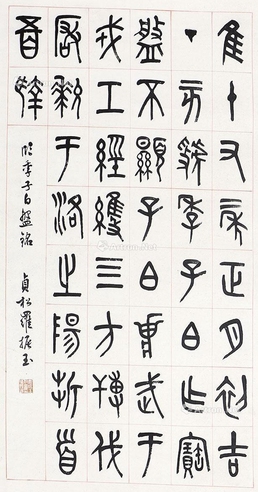 隹十又二年正月初吉
丁亥虢季子白乍寶
盤不顯子白壯武于
戎工經維四方搏伐
玁狁于洛之陽折首
五百
臨季子白盤銘 貞松羅振玉